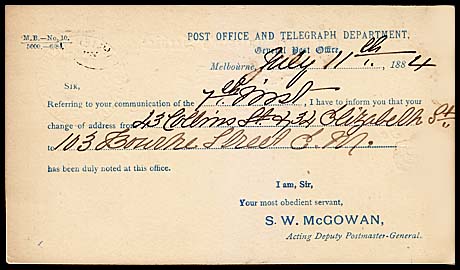 M.B.—No. 10.
5000.—6/84.
POST OFFICE AND TELEGRAPH DEPARTMENT,
General Post Office,
Melbourne, July 11th 1884
SIR,
Referring to your communication of the 7th inst, I have to inform you that your
change of address from 23 Collins St & 34 Elizabeth St
to 103 Bourke Street E. M.
has been duly noted at this office.
I am, Sir,
Your most obedient servant,
S. W. McGOWAN,
Acting Deputy Postmaster-General.